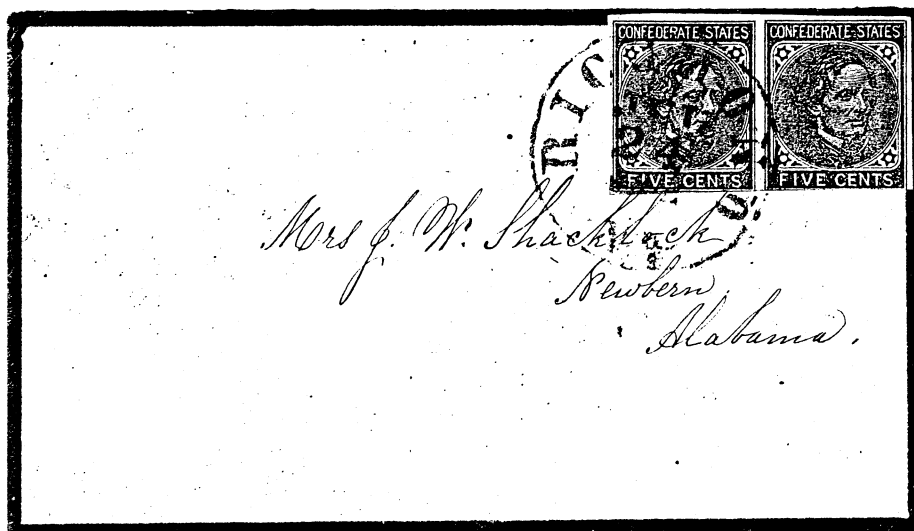 CONFEDERATE STATES
FIVE CENTS
CONFEDERATE STATES
FIVE CENTS
RIC
24
Mrs J. W. Shackelock
Newbern
Alabama.